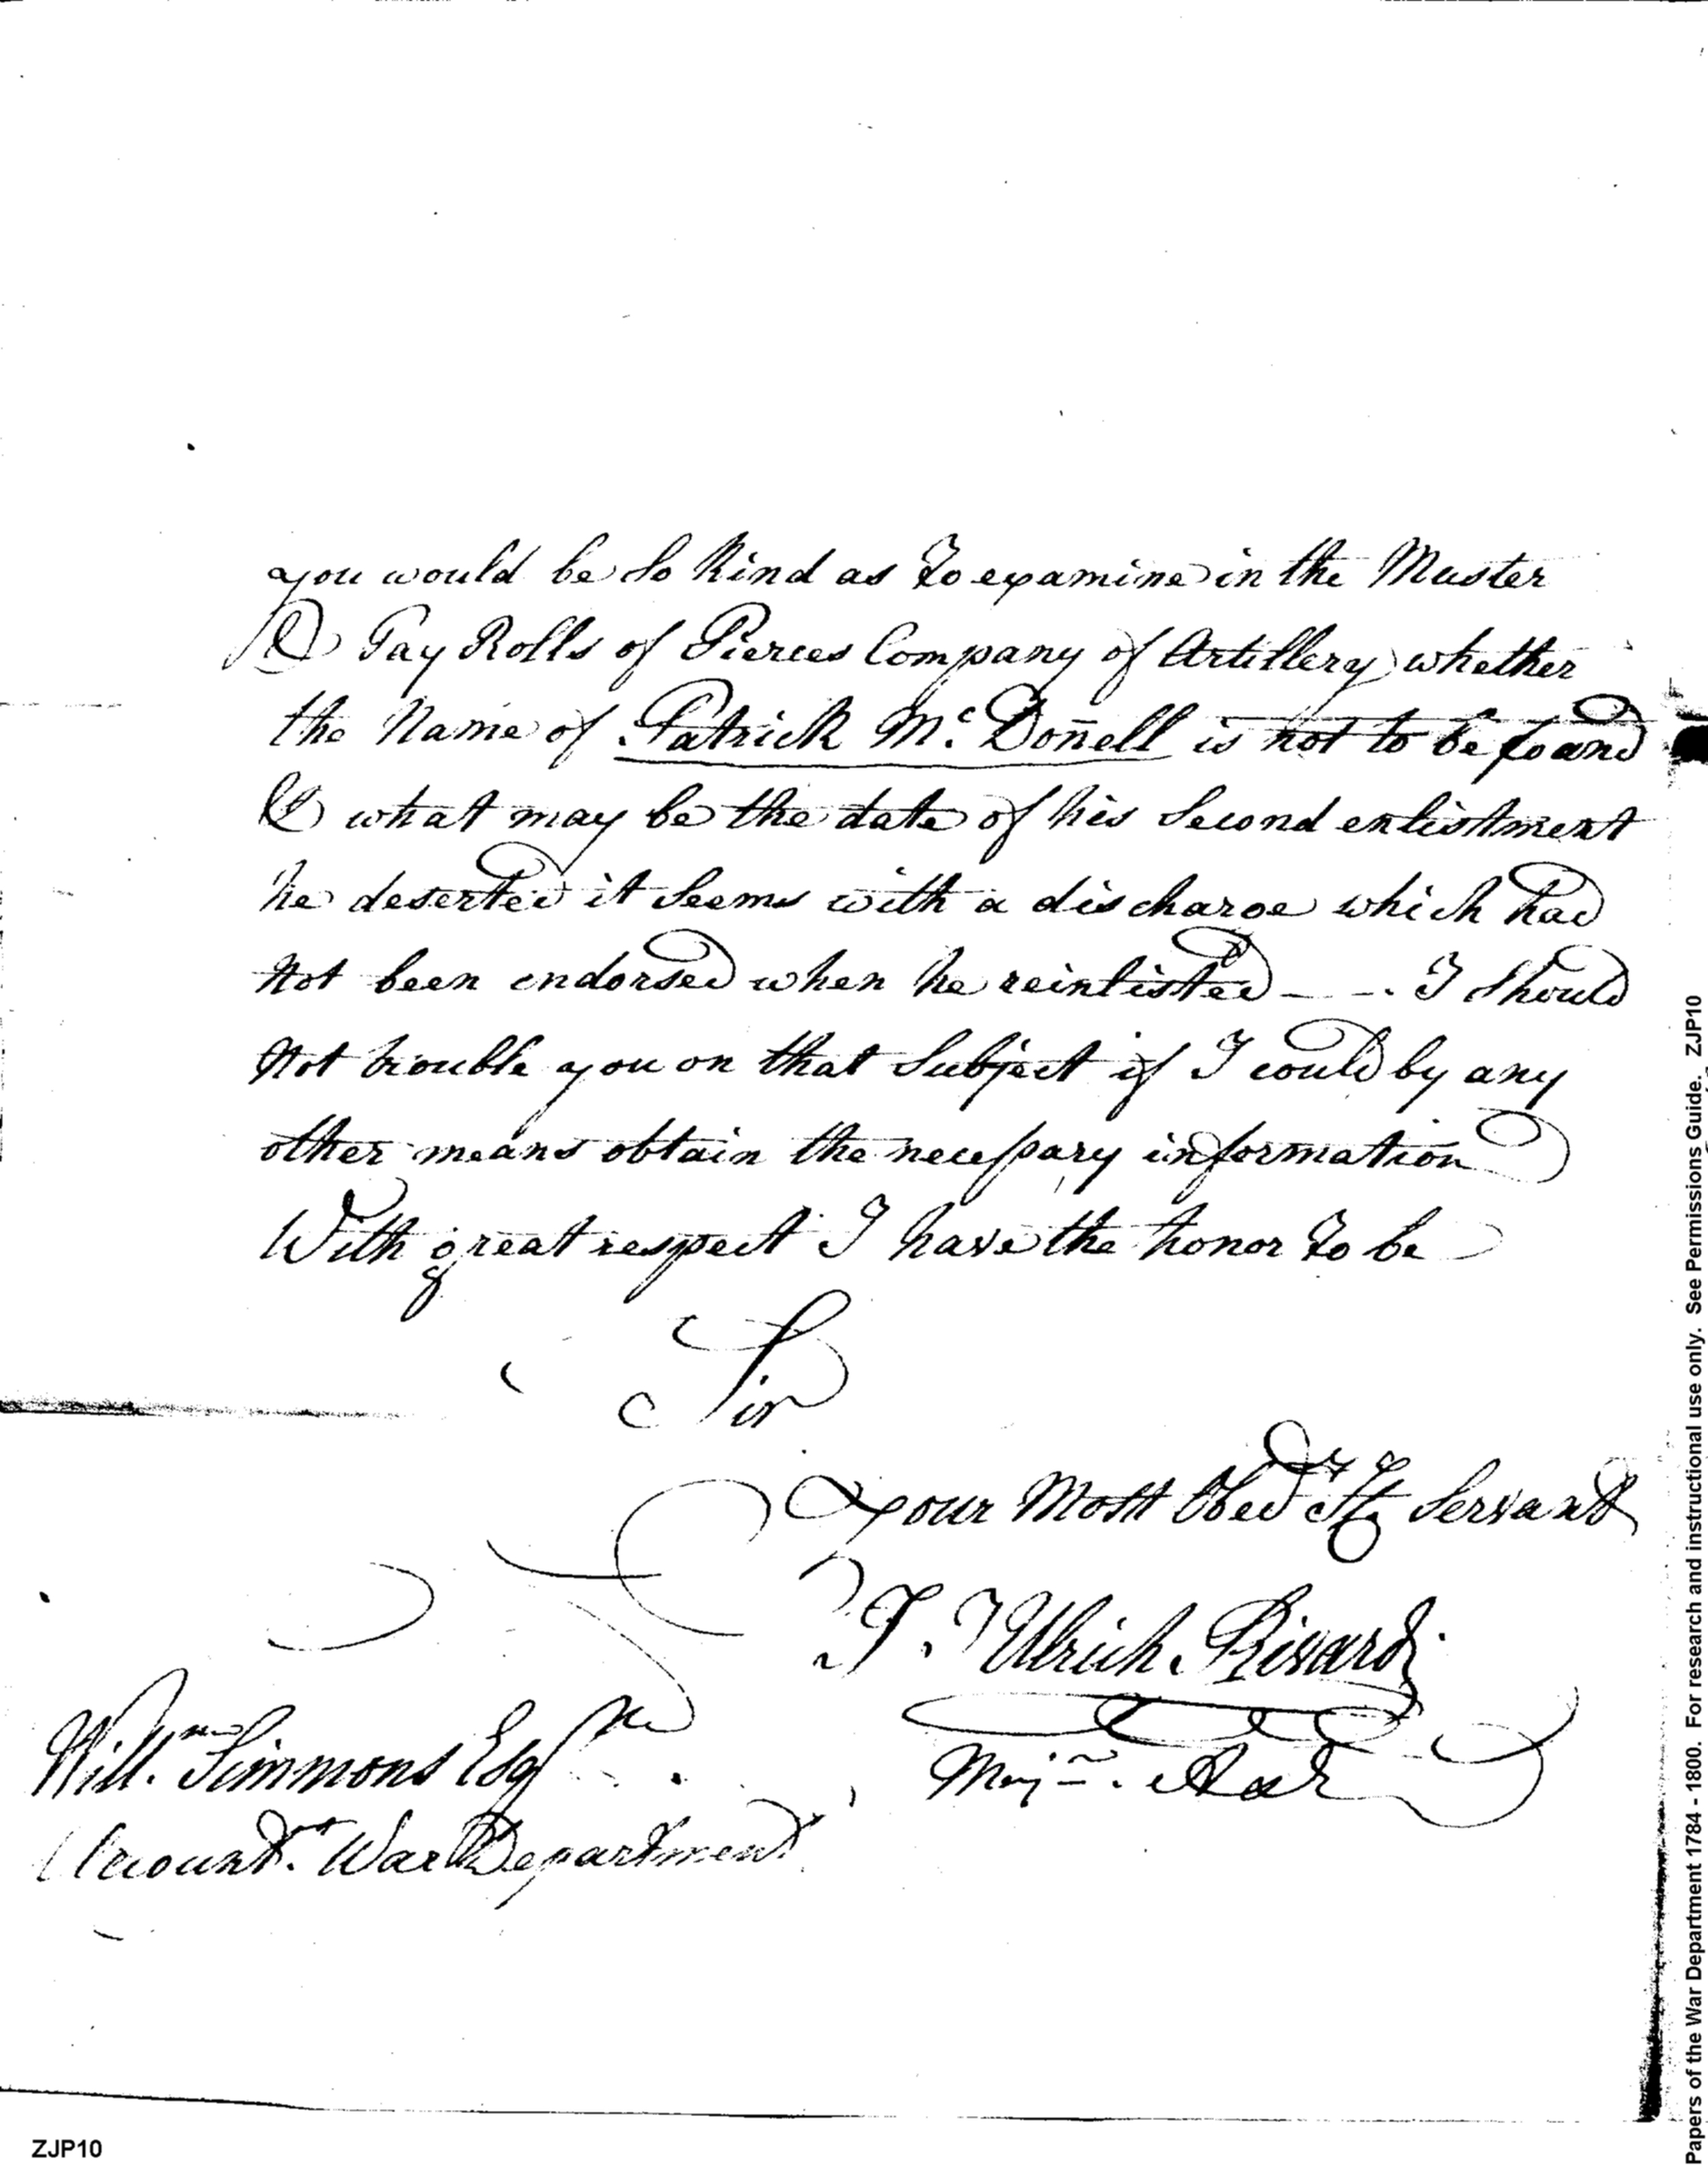 you would be so kind as to examine in the Muster
& Pay Rolls of Pierces Company of Artillery whether
the Name of Patrick Mc. Doñell is not to be found
& what may be the date of his second enlistment
he deserted it seems with a discharge which had
not been endorsed when he reinlisted — — . I should
not trouble you on that subject if I could by any
other means obtain the necessary information
With great respect I have the honor to be
Sir
your Most Obed St Servant
J. J. Ulrich Rivardi
Majr.
Willm Simmons Esqr
Accountt. War Department
ZJP10
Papers of the War Department 1784 - 1800. For research and instructional use only. See Permissions Guide. ZJP10